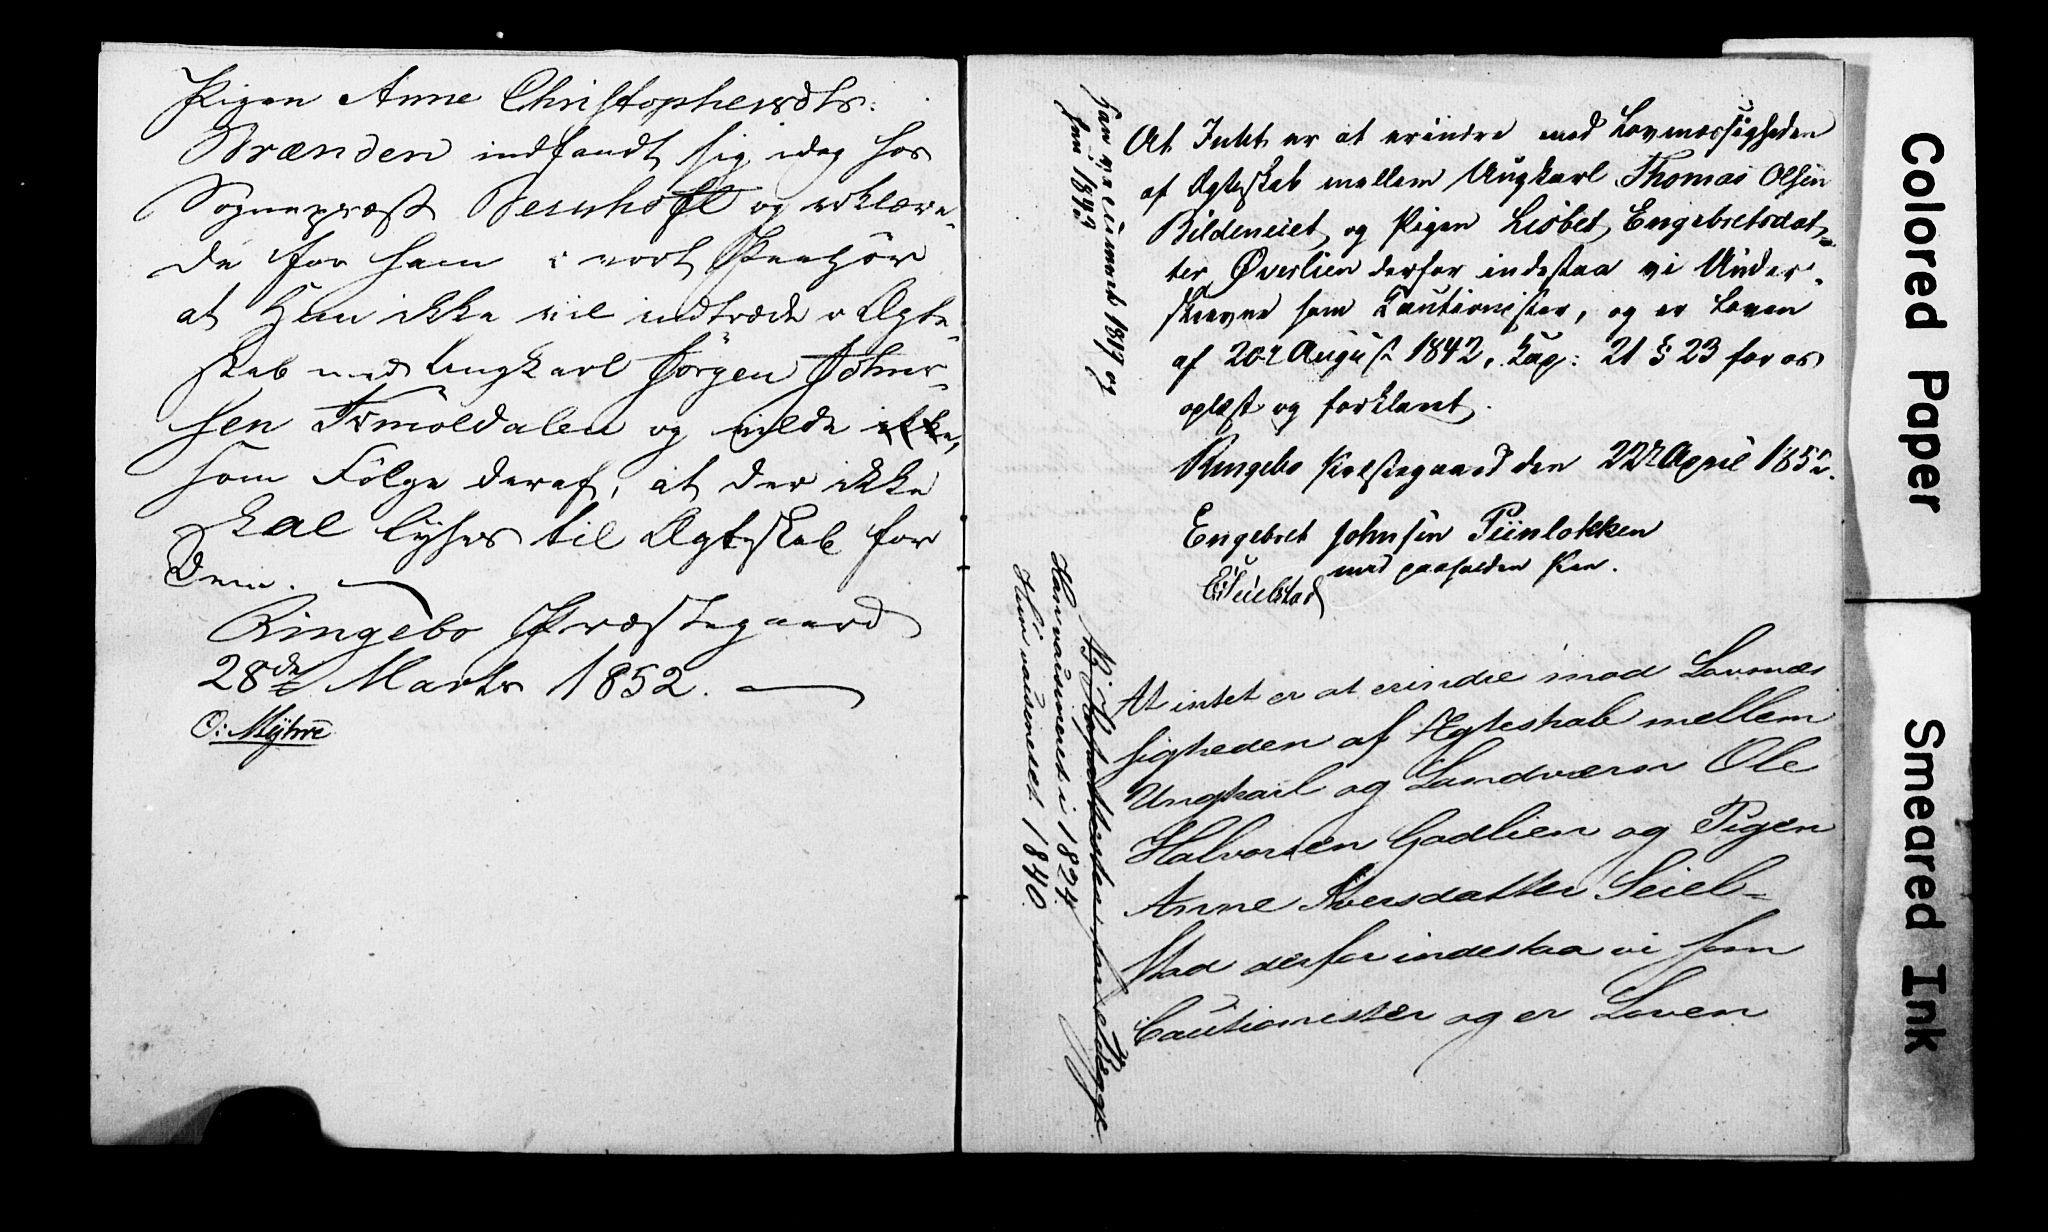 Pigen Anne Christophersdtr:
Brænden indfandt sig idag hos
Sognepræst Bernhoft og erklære-
de for ham i vort Paahør
at Hun ikke vil indtræde i Ægte-
skab med Ungkarl Jörgen Johns-
sen Tromoldalen og vilde ikke,
som Fölge deraf, at der ikke
skal lyses til Ægteskab for
Dem.
Ringebo Præstegaard
28de Marts 1852.
O: Myhre
Han vaccineret 1817 og
hun 1842
At Intet er at erindre mod Lovmæssigheden
af Ægteskab mellem Ungkarl Thomas Olsen
Bildeneiet og Pigen Lisbet Engebretsdat-
ter Øverlien derfor indestaa vi Under-
skrevne som Cautionister, og er Loven
af 20de August 1842, Kap: 21 § 23 for os
oplæst og forklaret.
Ringebo Præstegaard den 22de April 1852.
Engebret Johnsen Piinlokken
med paaholden Pen.
E: Seielstad
NB, for Begge.
Han vaccineret i 1824
Hun vaccineret 1840.
At intet er at erindre imod Lovmæs
sigheden af Ægteskab mellem
Ungkarl og Landværn Ole
Halvorsen Gadlien og Pigen
Anne Iversdatter Seiel-
stad derfor indestaa vi som
Cautionister og er Loven
Colored Paper
Smeared Ink